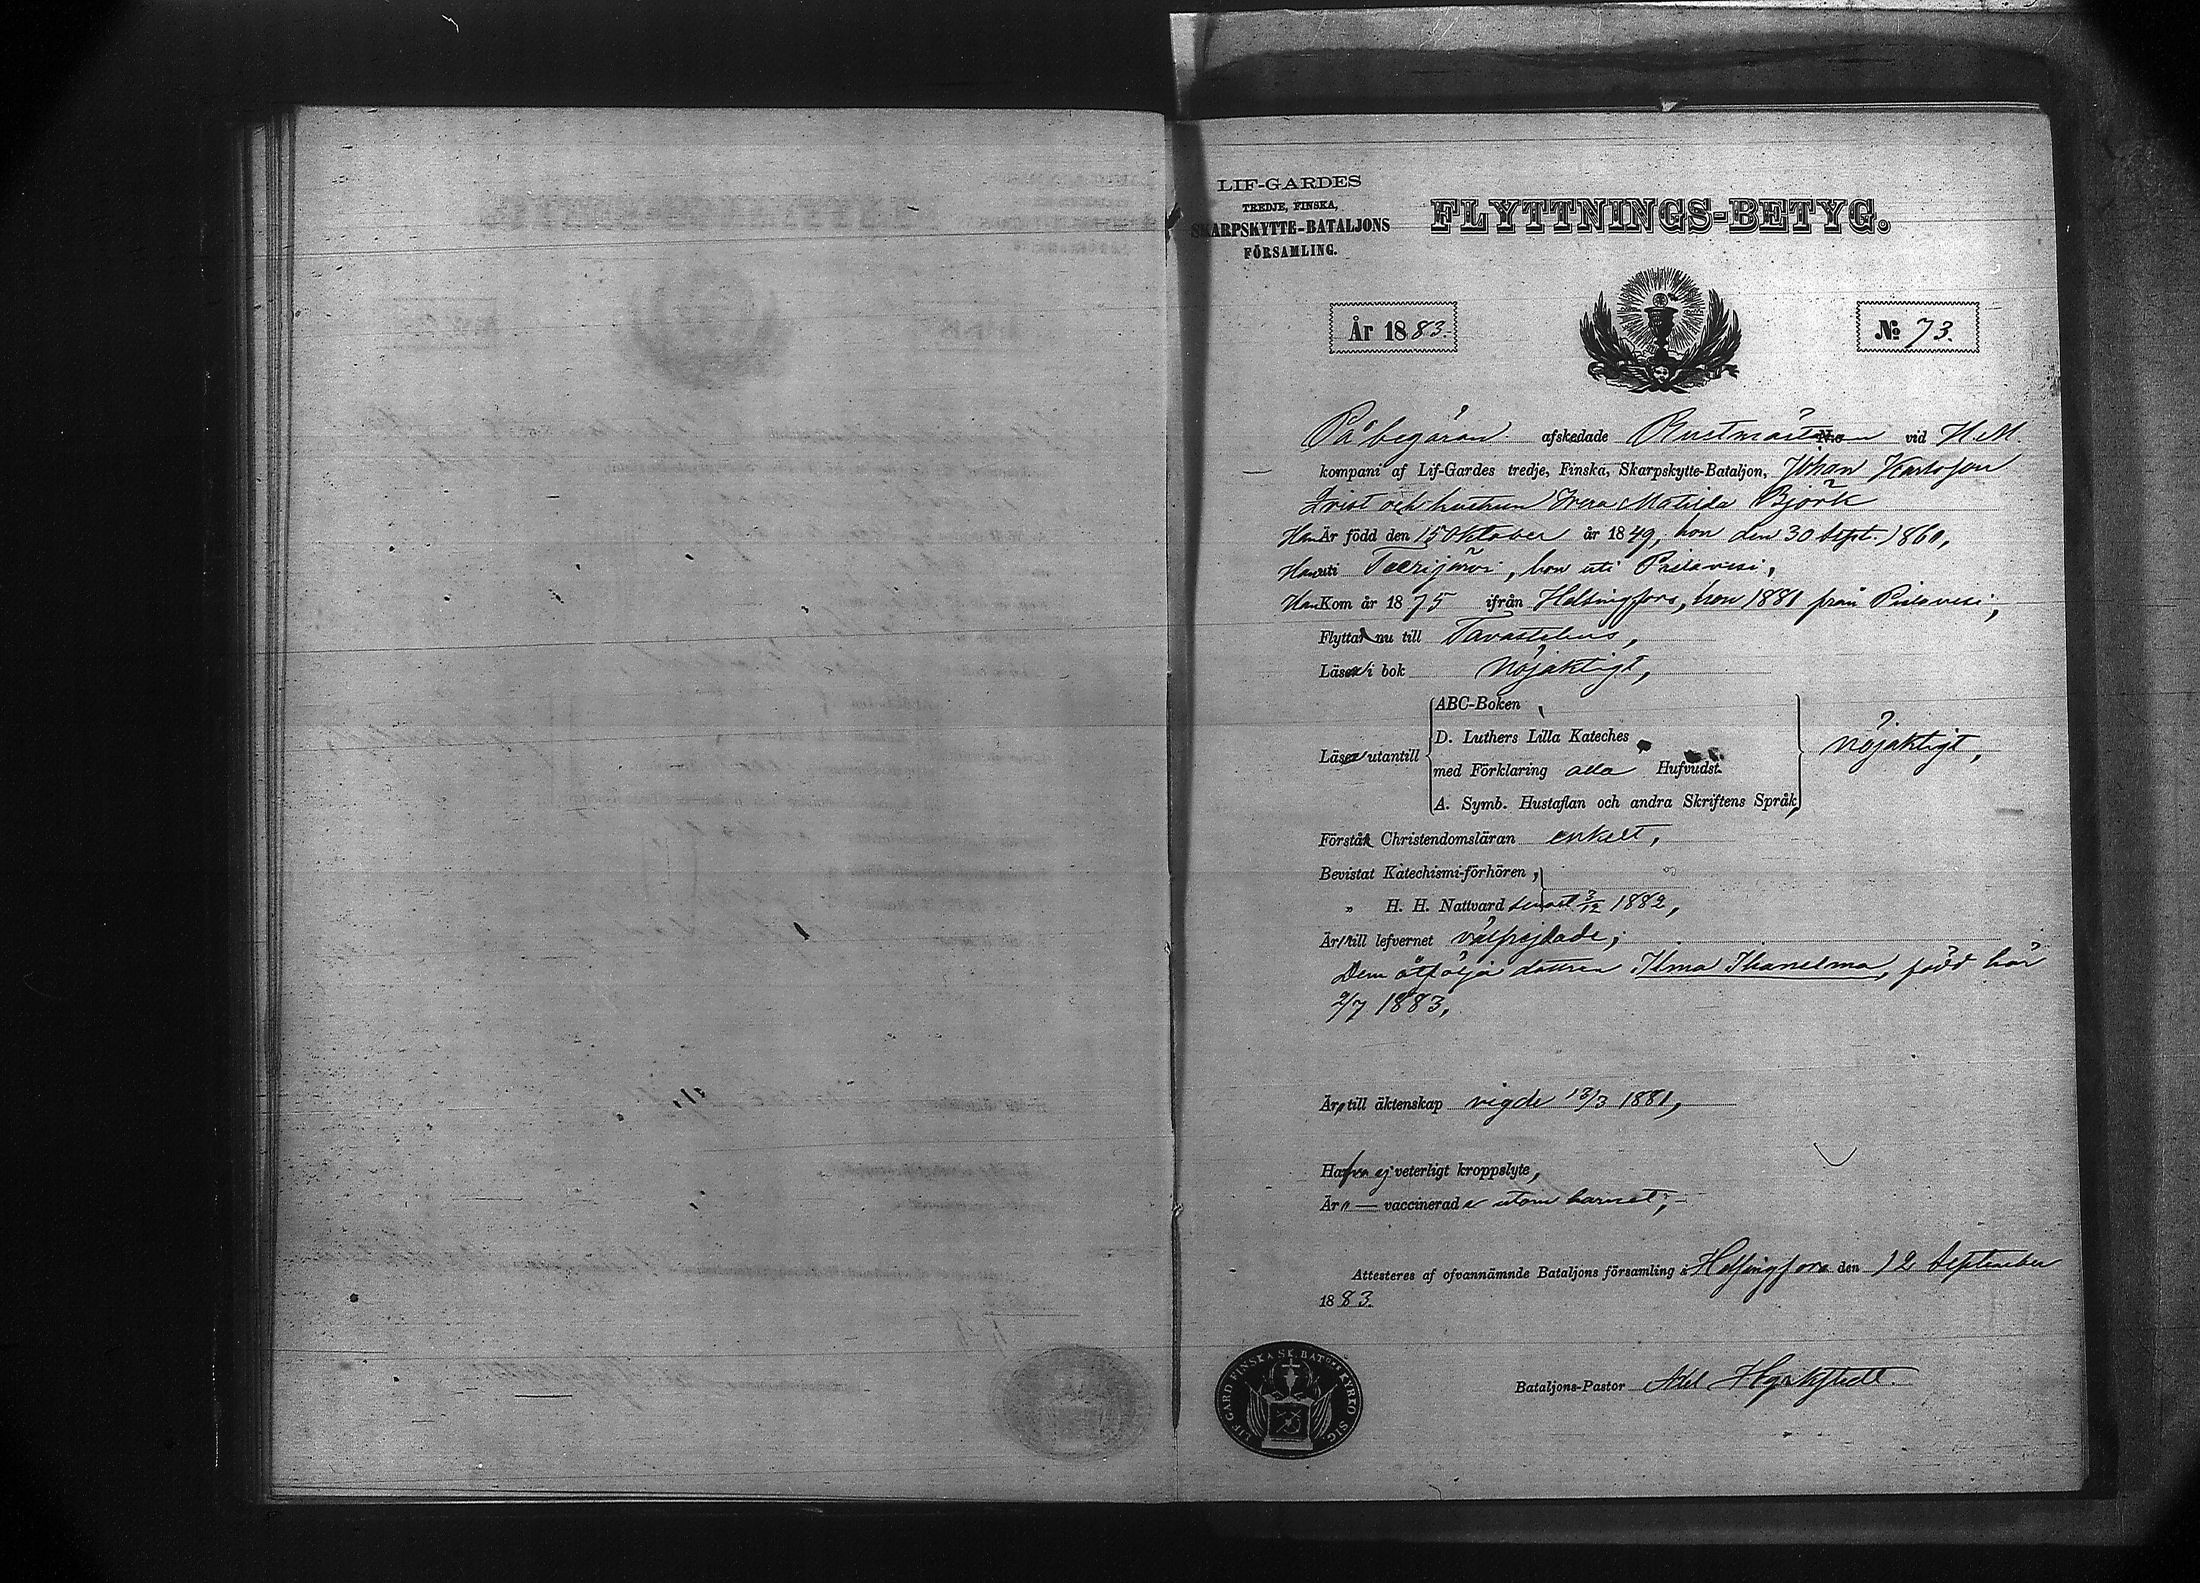 LIF-GARDES
TREDJE, FINSKA,
SKARPSKYTTE-BATALJONS
FÖRSAMLING.
FLYTTNINGS-BETYG.
År 1883.
№ 73.
På begäran afskedade Rustmästaren vid H.M.
kompani af Lif-Gardes tredje, Finska, Skarpskytte-Bataljon, Johan Karlsson
Qvist och hustrun Vera Matilda Björk
Han Är född den 15 Oktober år 1849, hon den 30 Sept. 1860,
Han uti Teerijärvi, hon uti Pielavesi,
Han Kom år 1875 ifrån Helsingfors, hon 1881 från Pielavesi,
Flytta nu till Tavastehus,
Läsa i bok nöjaktigt,
ABC-Boken,
D. Luthers Lilla Kateches
Läsa utantill
med Förklaring alla Hufvudst.
nöjaktigt,
A. Symb. Hustaflan och andra Skriftens Språk,
Förstå Christendomsläran enkelt,
Bevistat Katechismi-förhören,
" H. H. Nattvard senast 3/12 1882,
Äro till lefvernet välfrejdade;
Dem åtfölja dottren Ilma Ihanelma, född här
2/7 1883,
Äro till äktenskap vigde 13/3 1881,
Hafva ej veterligt kroppslyte,
Äro — vaccinerade utom barnet; —
Attesteras af ofvannämnde Bataljons församling à Helsingfors den 12 September
1883.
Bataljons-Pastor Adel
LIF GARD FINSKA SK. BAT:ONS KYRKO SIG.